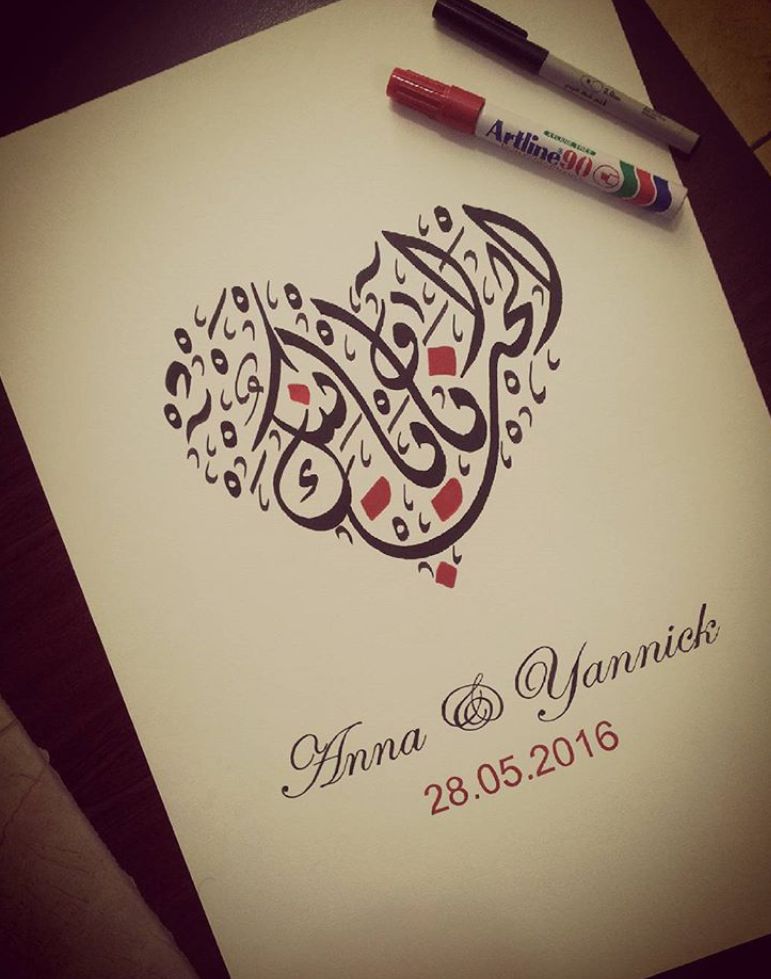 Artline 90
الحب آنا و يانيك
Anna & Yannick
28.05.2016